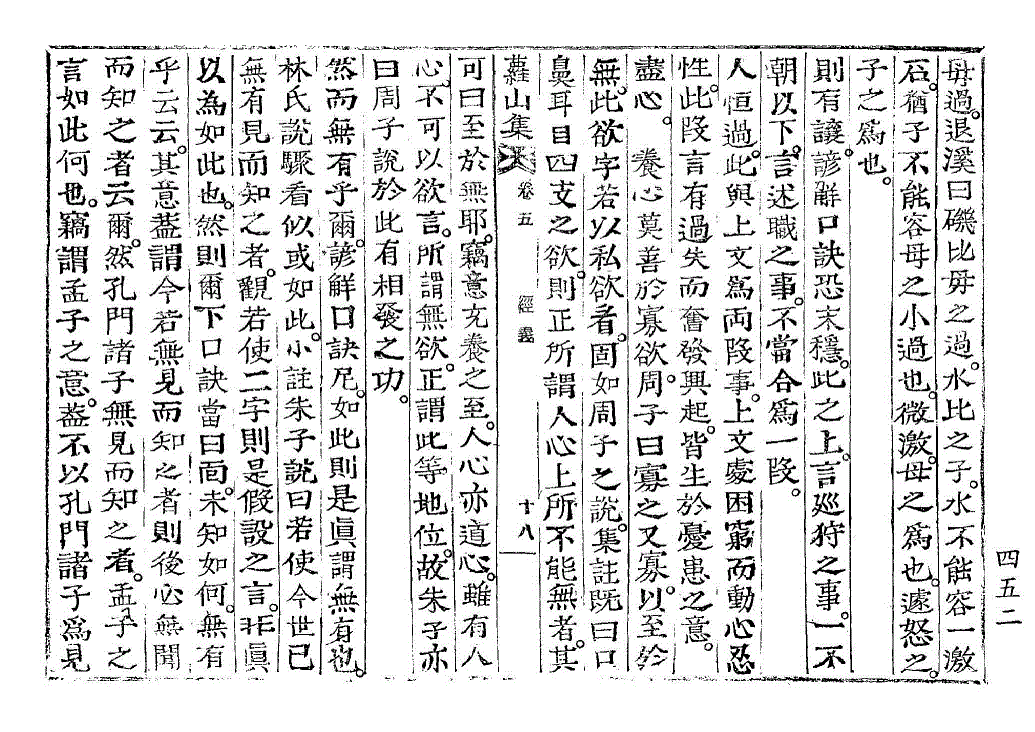 母過退溪曰磯比母之過水比之子水不能容一激
石猶子不能容母之小過也微激母之爲也遽怒之
子之爲也
則有讓諺解口訣恐未穩此之上言巡狩之事一不
朝以下言述職之事不當合爲一段
人恒過此與上文爲兩段事上文處困窮而動心忍
性此段言有過失而奮發興起皆生於憂患之意
盡心　養心莫善於寡欲周子曰寡之又寡以至於
無此欲字若以私欲看固如周子之說集註旣曰口
鼻耳目四支之欲則正所謂人心上所不能無者其
蘿山集　卷五　經義　十八
可曰至於無耶竊意充養之至人心亦道心雖有人
心不可以欲言所謂無欲正謂此等地位故朱子亦
曰周子說於此有相發之功
然而無有乎爾諺解口訣尼如此則是眞謂無有也
林氏說驟看似或如此小註朱子說曰若使今世已
無有見而知之者觀若使二字則是假設之言非眞
以為如此也然則爾下口訣當曰面未知如何無有
乎云云其意盖謂今若無見而知之者則後必無聞
而知之者云爾然孔門諸子無見而知之者孟子之
言如此何也竊謂孟子之意盖不以孔門諸子爲見
四五二